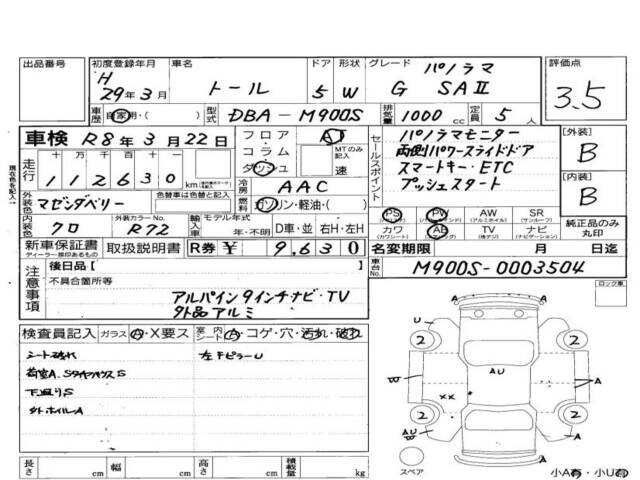 出品番号 初度登録年月 車名 ドア 形状 グレード 評価点
H 29年3月 トール 5 W パノラマ
G SAⅡ 3.5
車歴 自家用・( ) 型式 DBA-M900S 排気量 1000 cc 定員 5人
車検 R8年3月22日 フロア AT セールスポイント パノラマモニター [外装]
走行 十万千百十一 コラム MTのみ記入 両側パワースライドドア B
112630 km ダッシュ 速 スマートキー・ETC [内装]
外装色 色替車は色替と記入 冷房 AAC プッシュスタート B
マゼンダベリー 燃料 ガソリン・軽油・( )
内装色 外装カラーNo. 輸入車 モデル年式 PS PW AW SR
クロ R72 年・不明 D車・並 右H・左H カワ AB TV ナビ 純正品のみ丸印
新車保証書 取扱説明書 R券 ¥ 9,630 名変期限 月 日迄
ディーラー原印あるもの
注意事項 後日品[ ] 車台No. M900S-0003504
不具合箇所等 ロック車
アルパイン9インチナビ・TV
外品アルミ
検査員記入 ガラス A・X要ス 室内 シート A・コゲ・穴・汚れ・破れ
シート破れ 左FピラーU
荷室A.SタイヤハウスS
下廻りS
外ホイルA
A
2 2
AU
A
W
××
A
2 2
AU
W
A
A
スペア
長さ cm 幅 cm 高さ cm 積載量 kg
小A有・小U有
現在色を記入